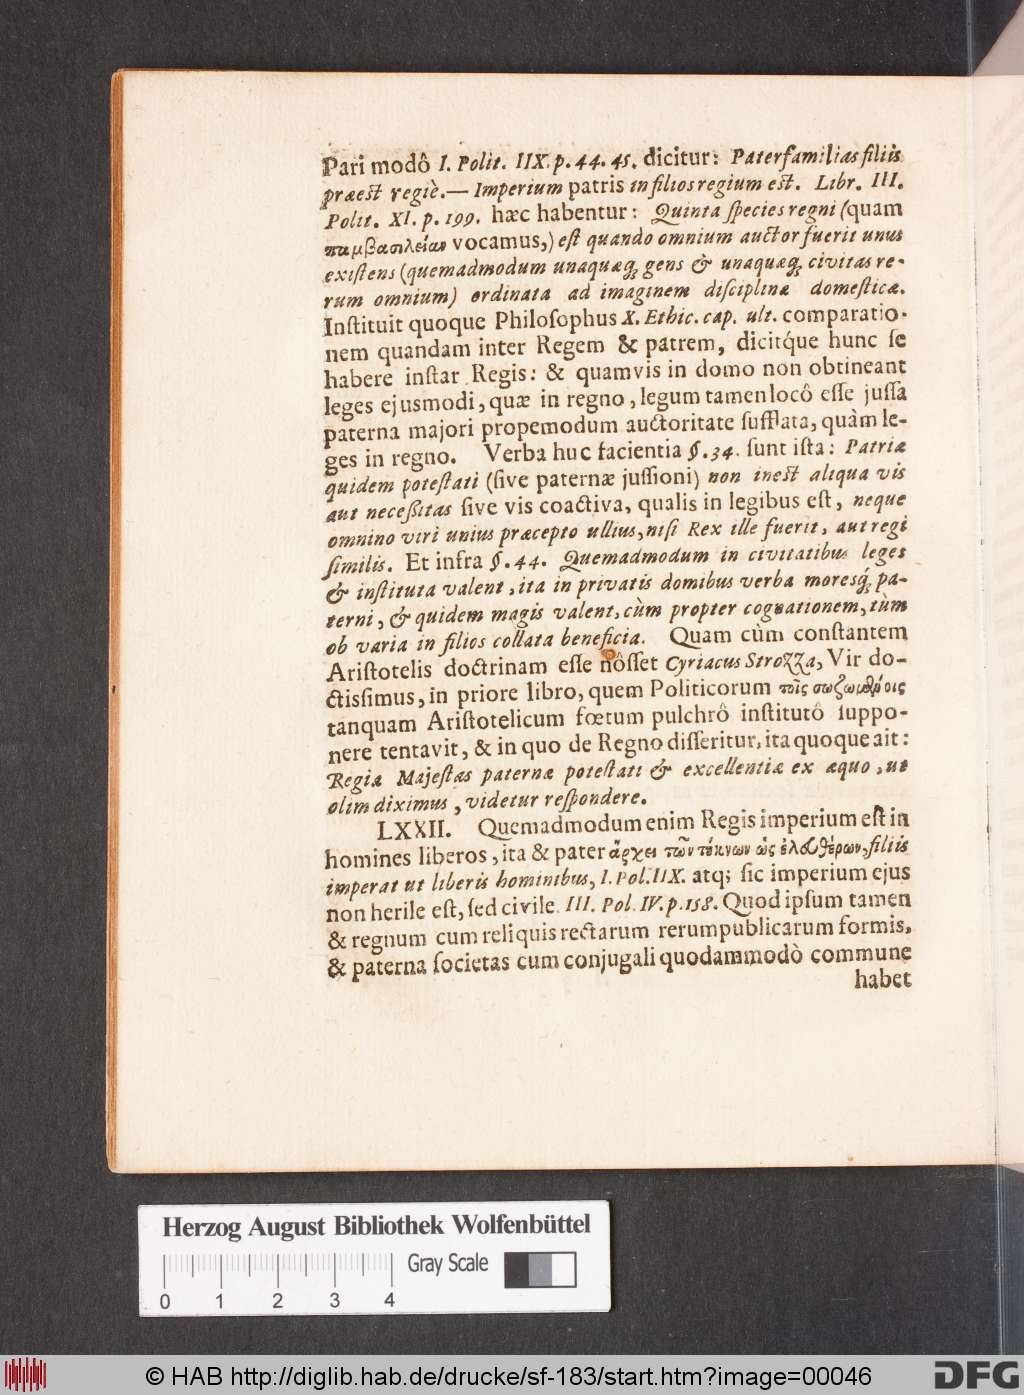 Pari modô I. Polit. IIX. p. 44. 45. dicitur: Paterfamilias filiis
præest regiè.— Imperium patris in filios regium est. Libr. III.
Polit. XI. p. 199. hæc habentur: Quinta ſpecies regni (quam
παμβασιλείαν vocamus,) eſt quando omnium auctor fuerit unus
exiſtens (quemadmodum unaquæq; gens & unaquæq; civitas re-
rum omnium) ordinata ad imaginem diſciplinæ domeſticæ.
Inſtituit quoque Philoſophus X. Ethic. cap. ult. comparatio-
nem quandam inter Regem & patrem, dicitq́ue hunc ſe
habere inſtar Regis: & quamvis in domo non obtineant
leges ejusmodi, quæ in regno, legum tamen locô eſſe juſſa
paterna majori propemodum auctoritate ſufflata, quàm le-
ges in regno. Verba huc facientia §. 34. ſunt iſta: Patriæ
quidem poteſtati (ſive paternæ juſſioni) non inest aliqua vis
aut neceßitas ſive vis coactiva, qualis in legibus eſt, neque
omnino viri unius præcepto ullius, niſi Rex ille fuerit, aut regi
ſimilis. Et infra §. 44. Quemadmodum in civitatibus leges
& inſtituta valent, ita in privatis domibus verba moresq́; pa-
terni, & quidem magis valent, cùm propter cognationem, tùm
ob varia in filios collata beneficia. Quam cùm conſtantem
Ariſtotelis doctrinam eſſe nôſſet Cyriacus Strozza, Vir do-
ctisſimus, in priore libro, quem Politicorum τοῖς σωζωμένοις
tanquam Ariſtotelicum fœtum pulchrô inſtitutô ſuppo-
nere tentavit, & in quo de Regno diſſeritur, ita quoque ait:
Regiæ Majeſtas paternæ poteſtati & excellentiæ ex æquo, ut
olim diximus, videtur reſpondere.
LXXII. Quemadmodum enim Regis imperium eſt in
homines liberos, ita & pater ἄρχει τῶν τέκνων ὡς ἐλευθέρων, filiis
imperat ut liberis hominibus, I. Pol. IIX. atq; ſic imperium ejus
non herile eſt, ſed civile III. Pol. IV. p. 158. Quod ipſum tamen
& regnum cum reliquis rectarum rerumpublicarum formis,
& paterna ſocietas cum conjugali quodammodò commune
habet
Herzog August Bibliothek Wolfenbüttel
Gray Scale
0 1 2 3 4
© HAB http://diglib.hab.de/drucke/sf-183/start.htm?image=00046
DFG